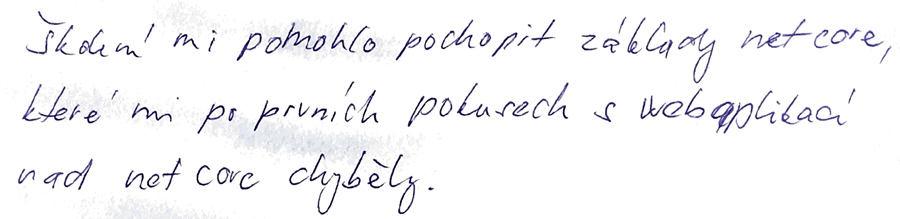 Školení mi pomohlo pochopit základy netcore,
které mi po prvních pokusech s webaplikací
nad netcore chyběly.